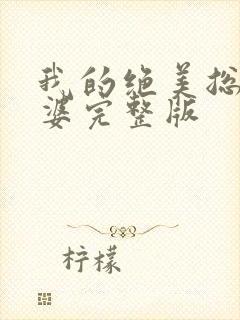 我的绝美总
婆完整版
柠檬